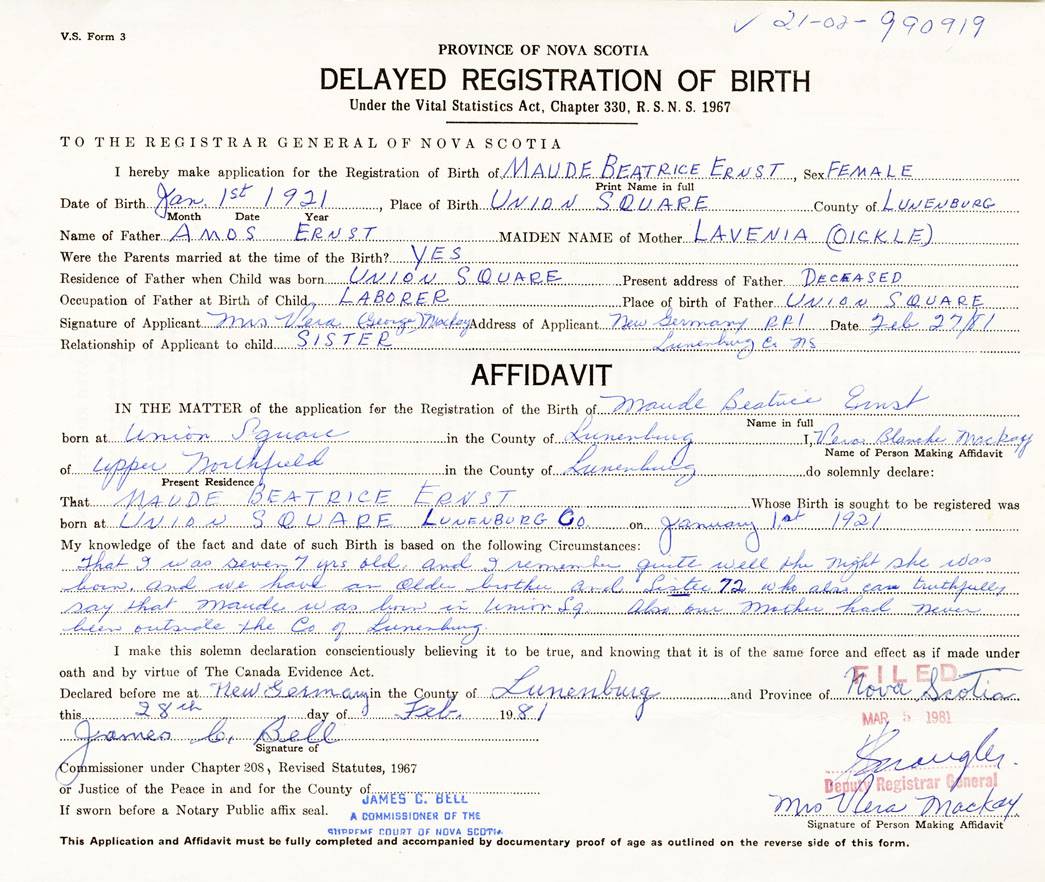 ✓ 21-02-990919
V.S. Form 3
PROVINCE OF NOVA SCOTIA
DELAYED REGISTRATION OF BIRTH
Under the Vital Statistics Act, Chapter 330, R.S.N.S. 1967
TO THE REGISTRAR GENERAL OF NOVA SCOTIA
I hereby make application for the Registration of Birth of MAUDE BEATRICE ERNST, Sex FEMALE
Print Name in full
Date of Birth Jan. 1st 1921, Place of Birth UNION SQUARE County of LUNENBURG
Month Date Year
Name of Father AMOS ERNST MAIDEN NAME of Mother LAVENIA (OICKLE)
Were the Parents married at the time of the Birth? YES
Residence of Father when Child was born UNION SQUARE Present address of Father DECEASED
Occupation of Father at Birth of Child LABORER Place of birth of Father UNION SQUARE
Signature of Applicant Mrs Vera (George) Mackay Address of Applicant New Germany RR1 Date Feb 27/81
Relationship of Applicant to child SISTER Lunenburg Co NS
AFFIDAVIT
IN THE MATTER of the application for the Registration of the Birth of Maude Beatrice Ernst
Name in full
born at Union Square in the County of Lunenburg I, Vera Blanche Mackay
Name of Person Making Affidavit
of Upper Northfield in the County of Lunenburg do solemnly declare:
Present Residence
That MAUDE BEATRICE ERNST Whose Birth is sought to be registered was
born at UNION SQUARE LUNENBURG CO. on January 1st 1921
My knowledge of the fact and date of such Birth is based on the following Circumstances:
That I was seven 7 yrs old, and I remember quite well the night she was
born, and we have an older brother and Sister 72 who also can truthfully
say that Maude was born in Union Sq. Also our Mother had never
been outside the Co of Lunenburg.
I make this solemn declaration conscientiously believing it to be true, and knowing that it is of the same force and effect as if made under
oath and by virtue of The Canada Evidence Act.
FILED
Declared before me at New Germany in the County of Lunenburg and Province of Nova Scotia
this 28th day of Feb. 1981
MAR 5 1981
James C. Bell
Signature of
Commissioner under Chapter 208, Revised Statutes, 1967
or Justice of the Peace in and for the County of
Deputy Registrar General
JAMES C. BELL
If sworn before a Notary Public affix seal.
A COMMISSIONER OF THE
SUPREME COURT OF NOVA SCOTIA
Mrs Vera Mackay
Signature of Person Making Affidavit
This Application and Affidavit must be fully completed and accompanied by documentary proof of age as outlined on the reverse side of this form.